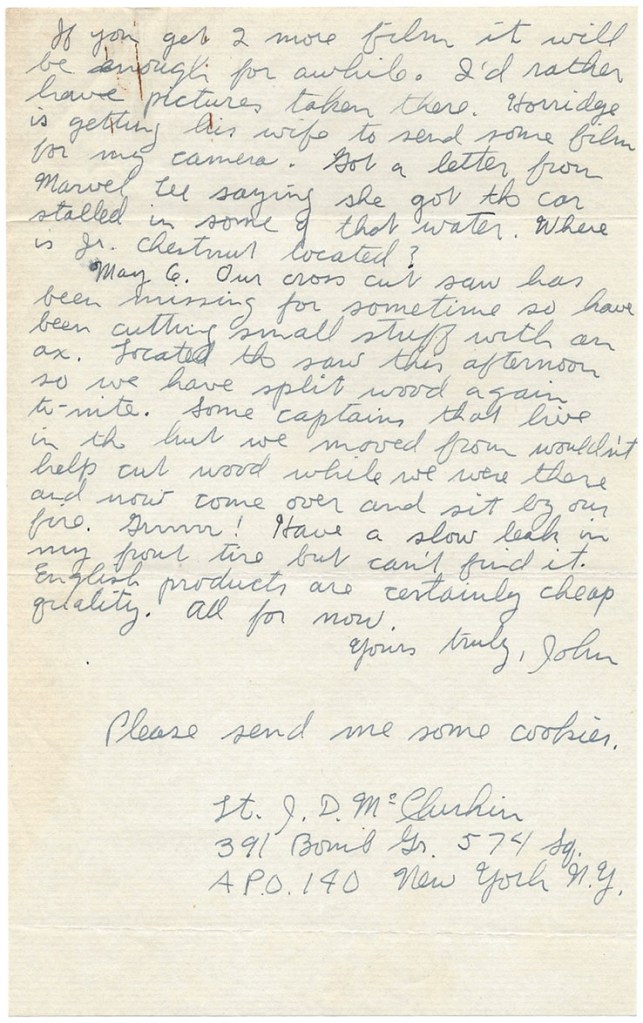 If you get 2 more film it will
be enough for awhile. I'd rather
have pictures taken there. Horridge
is getting his wife to send some film
for my camera. Got a letter from
Marvel Lee saying she got the car
stalled in some of that water. Where
is Jr. Chestnut located?
May 6. Our cross cut saw has
been missing for sometime so have
been cutting small stuff with an
ax. Located the saw this afternoon
so we have split wood again
to-nite. Some captains that live
in the hut we moved from wouldn't
help cut wood while we were there
and now come over and sit by our
fire. Grrrrr! Have a slow leak in
my front tire but can't find it.
English products are certainly cheap
quality. All for now.
Yours truly, John
Please send me some cookies.
Lt. J. D. McClurkin
391 Bomb Gr. 574 Sq.
A.P.O. 140 New York N.Y.